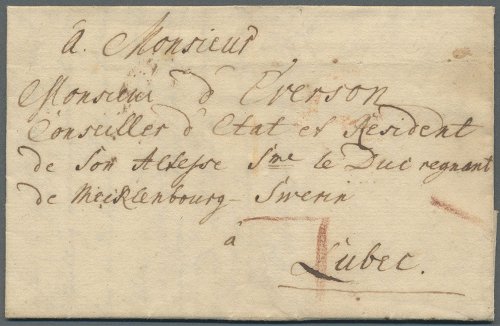 â. Monsieur
Monsieur d'Everson
Conseiller d'Etat et Resident
de Son Altesse Sme le Duc regnant
de Mecklenbourg-Swerin
à
Lübec.